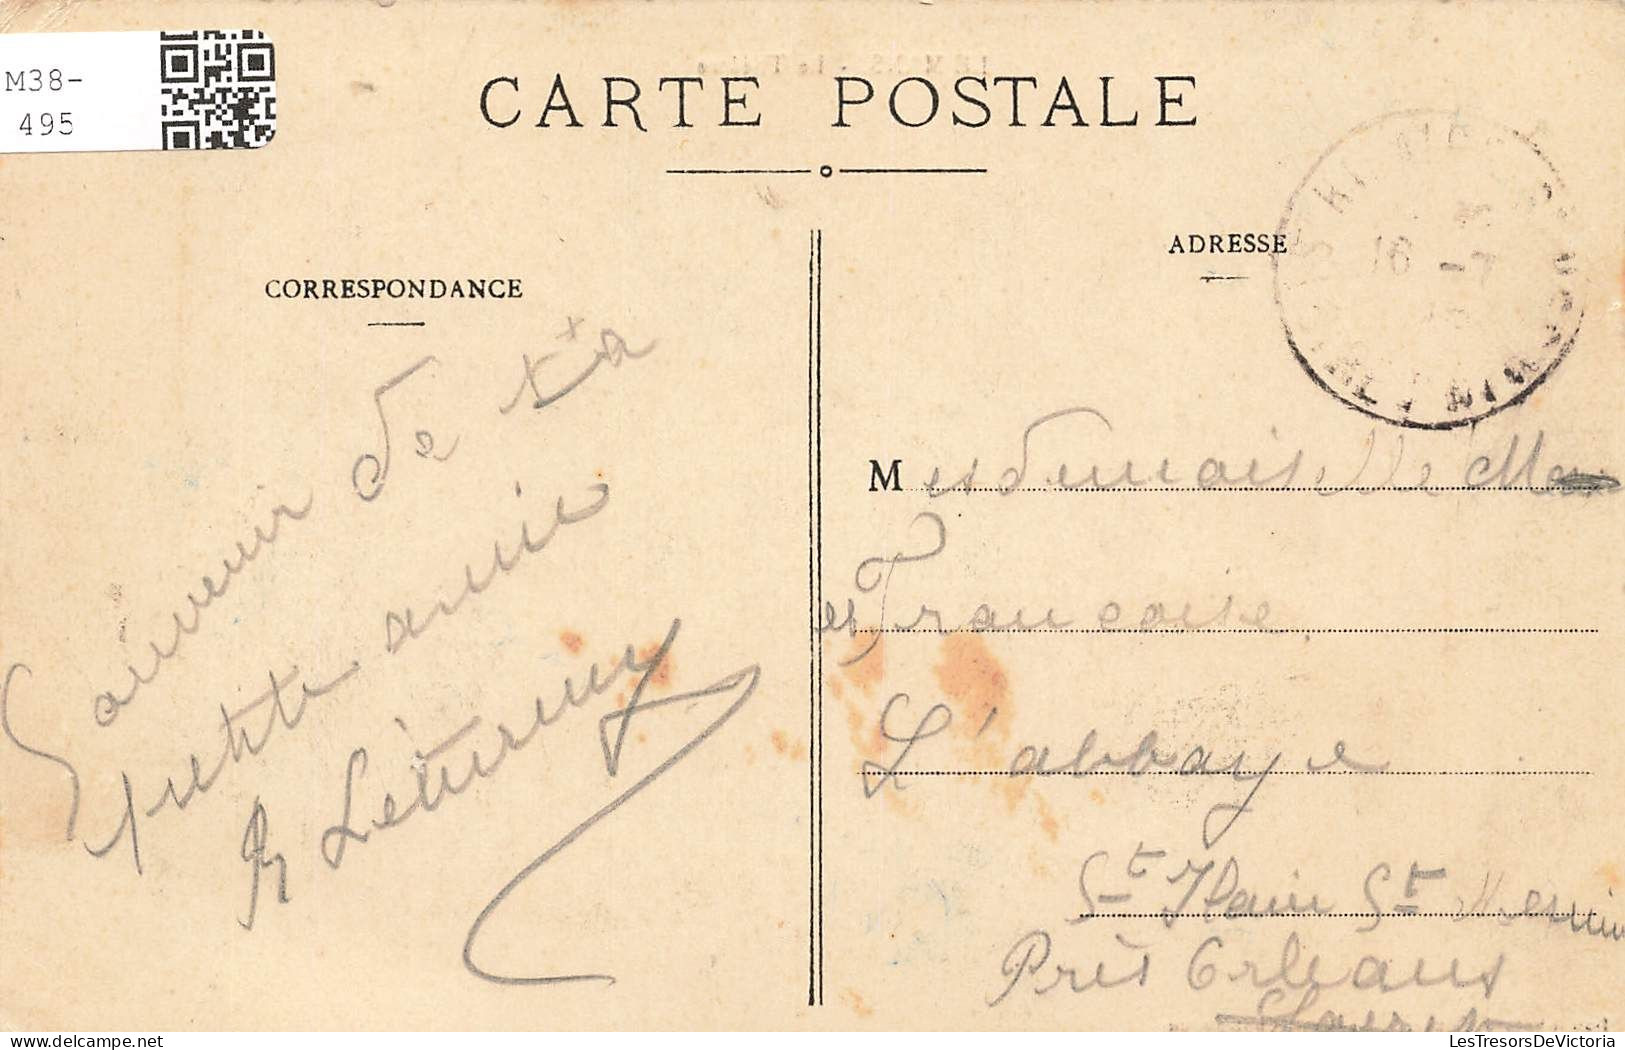 M38-
495
CARTE POSTALE
CORRESPONDANCE
ADRESSE
16 -7
Souvenir de ta
petite amie
Mesdemoiselle
et Françoise.
L'abbaye
St Hilaire St Mesmin
Près Orléans
Loiret
LesTresorsDeVictoria.com